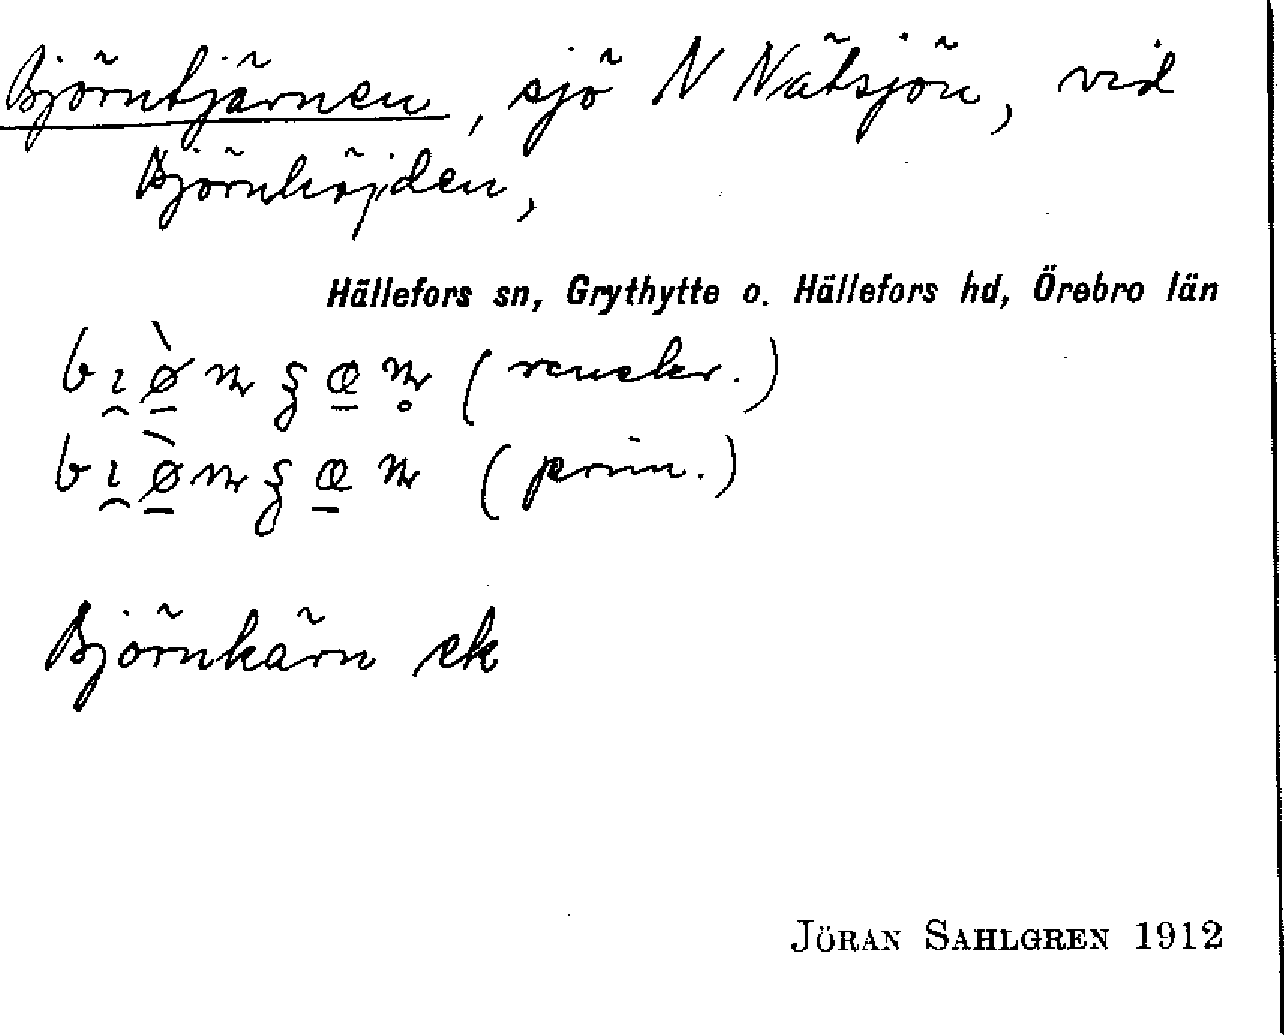 Björntjärnen, sjö N Nätsjön, vid
Björnhöjden,
Hällefors sn, Grythytte o. Hällefors hd, Örebro län
(renskr.)
(prim.)
Björnkärn ek
JÖRAN SAHLGREN 1912